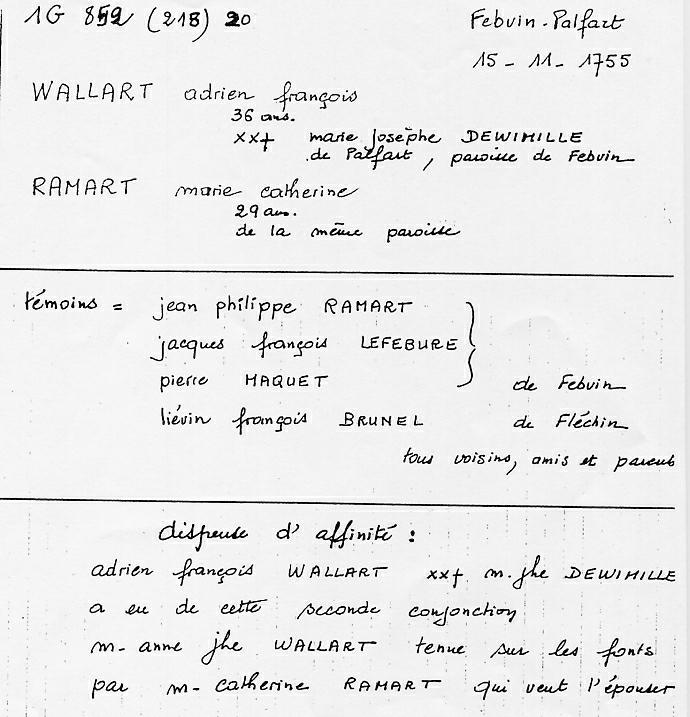 1G 852 (218) 20
Febvin-Palfart
15 - 11 - 1755
WALLART adrien françois
36 ans.
xx+ marie josèphe DEWIMILLE
de Palfart, paroisse de Febvin
RAMART marie catherine
29 ans.
de la même paroisse
témoins = jean philippe RAMART
jacques françois LEFEBURE
pierre MAQUET de Febvin
liévin françois BRUNEL de Fléchin
tous voisins, amis et parents
dispense d'affinité :
adrien françois WALLART xx+ m. jhe DEWIMILLE
a eu de cette seconde conjonction
m- anne jhe WALLART tenue sur les fonts
par m- catherine RAMART qui veut l'épouser